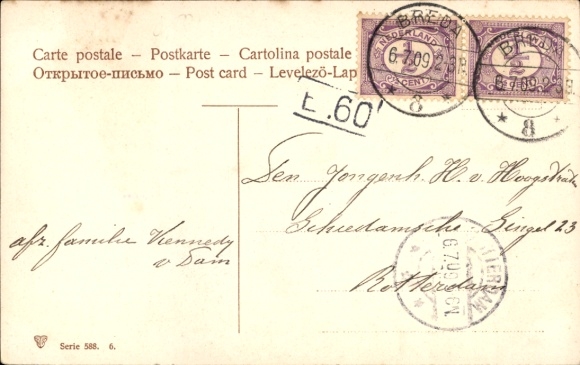 Carte postale – Postkarte – Cartolina postale
Открытое-письмо – Post card – Levelező-Lap
BREDA
6.7.09
8
NEDERLAND
½
CENT
BREDA
6.7.09
8
½
E.60
Den Jongenh. H. v. Hoogstrate
Schiedamsche Singel 23
Rotterdam
afz. familie Kennedy
v Dam
6.7.09
Serie 588. 6.